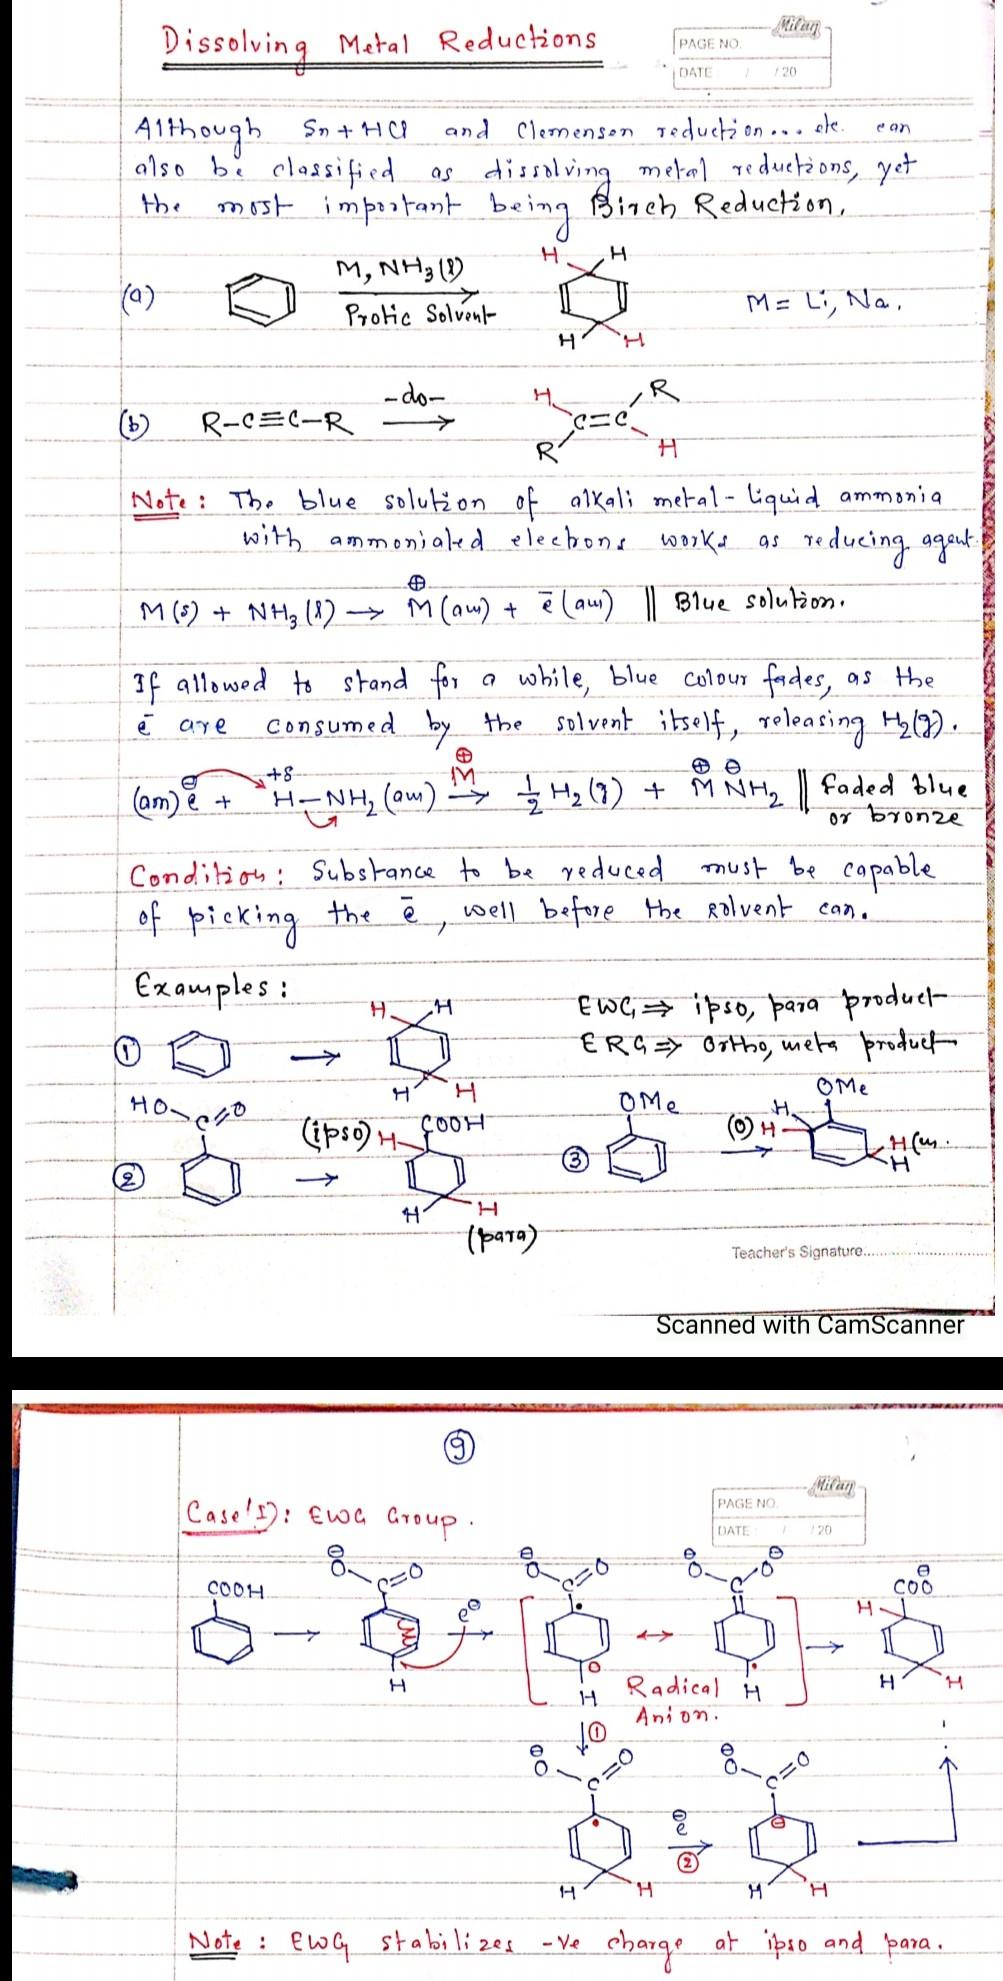 Dissolving Metal Reductions
Milan
PAGE NO.
DATE / /20
Although Sn + HCl and Clemenson reduction... etc. can
also be classified as dissolving metal reductions, yet
the most important being Birch Reduction,
(a) M, NH₃(l) H H
Protic Solvent M = Li, Na,
H H
(b) R-C≡C-R -do- → H R
C=C
R H
Note: The blue solution of alkali metal - liquid ammonia
with ammoniated electrons works as reducing agent.
M(s) + NH₃(l) → M⊕(am) + ē(am) || Blue solution.
If allowed to stand for a while, blue colour fades, as the
ē are consumed by the solvent itself, releasing H₂(g).
(am) e⊖ + +δ H-NH₂(am) M⊕ → ½ H₂(g) + M⊕ NH₂⊖ || faded blue
or bronze
Condition: Substance to be reduced must be capable
of picking the ē, well before the solvent can.
Examples:
① → H H H H
EWG ⇒ ipso, para product
ERG ⇒ Ortho, meta product
② HO-C=O → (ipso) H COOH
H H
(para)
③ OMe → (o) H H OMe
H (m.
H
Teacher's Signature
Scanned with CamScanner
⑨
Milan
PAGE NO.
DATE / /20
Case'I): EWG Group.
COOH → ⊖O-C=O H e⊖ → [ ⊖O-C=O H ↔ ⊖O-C-O⊖ H ] → COO⊖ H H H
Radical
Anion.
↓①
⊖O-C=O H H ē⊖ → ② ⊖O-C=O ⊖ H H
Note: EWG stabilizes -ve charge at ipso and para.